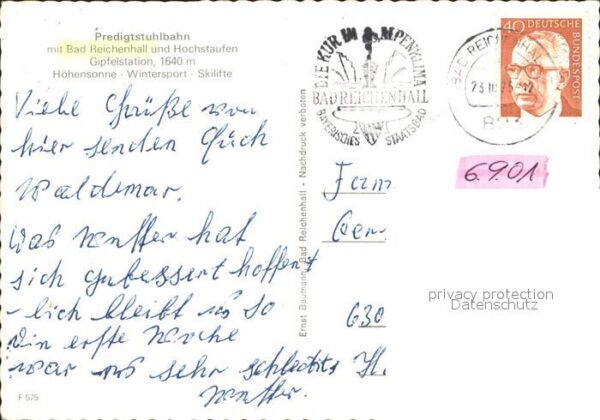 Predigtstuhlbahn
mit Bad Reichenhall und Hochstaufen
Gipfelstation, 1640 m
Höhensonne - Wintersport - Skilifte
Viele Grüße von
hier senden Euch
Waldemar.
Das Wetter hat
sich gebessert hoffent
-lich bleibt es so
Die erste Woche
war es sehr schlechtes
Wetter.
F 575
Ernst Baumann, Bad Reichenhall - Nachdruck verboten
DIE KUR IM ALPENKLIMA
BAD REICHENHALL
BAYERISCHES STAATSBAD
BAD REICHENHALL
40 DEUTSCHE
BUNDESPOST
6.9.01
Fam
630
privacy protection
Datenschutz